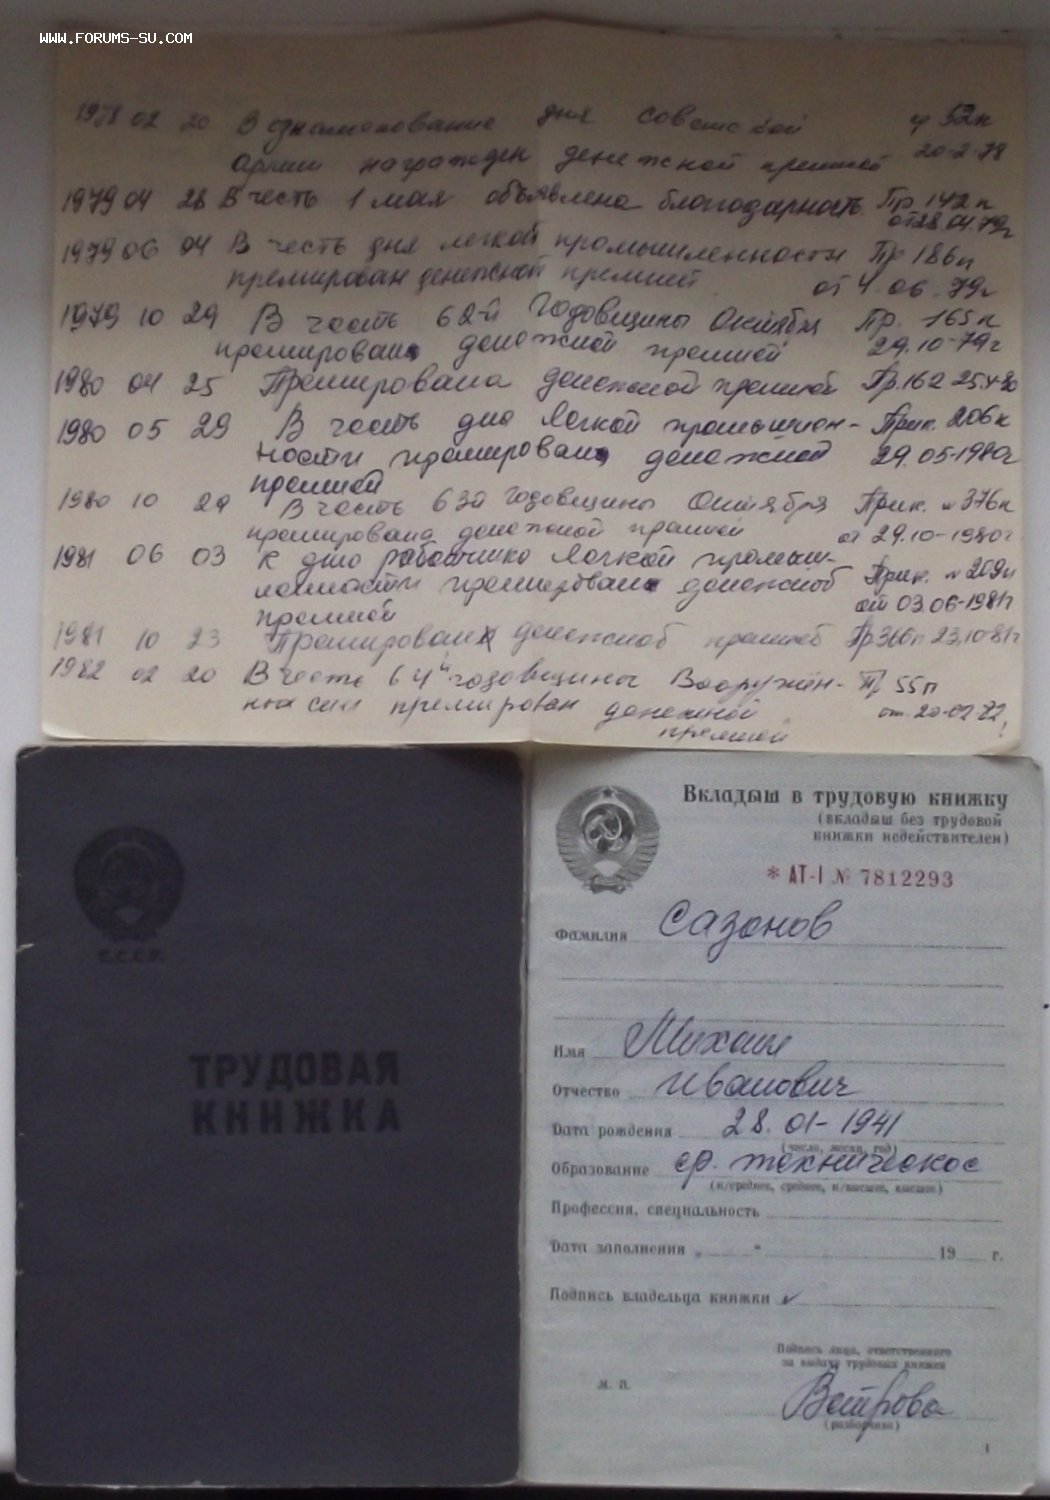 WWW.FORUMS-SU.COM
1978 02 20 В ознаменование дня советской пр 52п
армии награжден денежной премией 20-2-78
1979 04 28 В честь 1 мая объявлена благодарность Пр. 142п
от 28.04.79г
1979 06 04 В честь дня легкой промышленности Пр 186п
премирован денежной премией от 4.06.79г
1979 10 29 В честь 62-й Годовщины Октября Пр. 165п
премирован денежной премией 29.10-79г
1980 04 25 Премирована денежной премией Пр. 162 25.4-80
1980 05 29 В честь дня легкой промышлен- Прик. 206к
ности премирован денежной 29.05-1980г
премией
1980 10 29 В честь 63й годовщины Октября Прик. № 376к
премирована денежной премией от 29.10-1980г
1981 06 03 К дню работника легкой промыш-
ленности премирован денежной Прик. № 209п
премией от 03.06-1981г
1981 10 23 Премирован денежной премией Пр 366п 23.10-81г
1982 02 20 В честь 64й годовщины Вооружён- Пр 55п
ных сил премирован денежной от 20-02-82
премией
С.С.С.Р.
ТРУДОВАЯ
КНИЖКА
Вкладыш в трудовую книжку
(вкладыш без трудовой
книжки недействителен)
* АТ-I № 7812293
Фамилия Сазонов
Имя Михаил
Отчество Иванович
Дата рождения 28.01-1941
(число, месяц, год)
Образование ср. техническое
(н/среднее, среднее, н/высшее, высшее)
Профессия, специальность
Дата заполнения „ " 19 г.
Подпись владельца книжки ✓
Подпись лица, ответственного
за выдачу трудовых книжек
М. П.
Ветрова
(разборчиво)
1